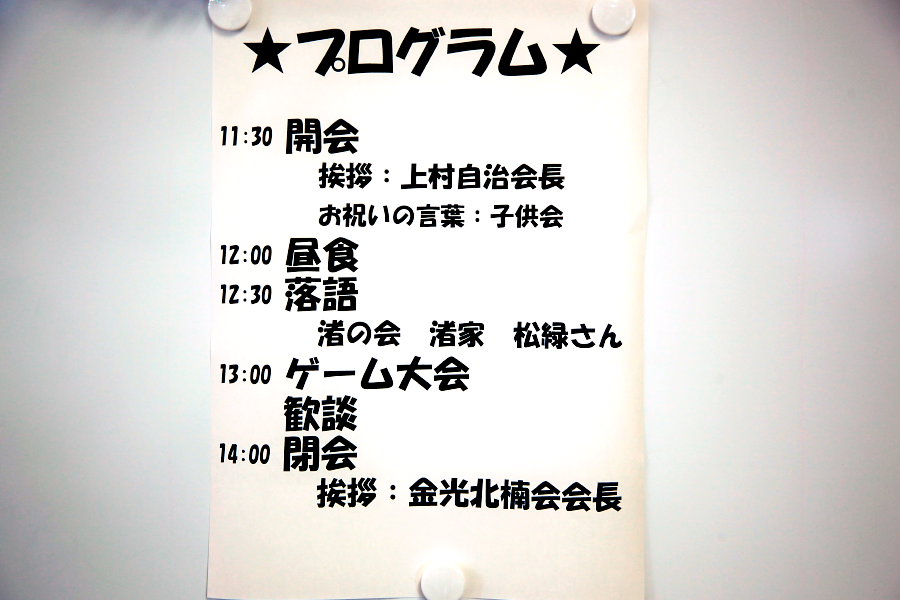 ★プログラム★
11:30 開会
挨拶：上村自治会長
お祝いの言葉：子供会
12:00 昼食
12:30 落語
渚の会 渚家 松緑さん
13:00 ゲーム大会
歓談
14:00 閉会
挨拶：金光北楠会会長